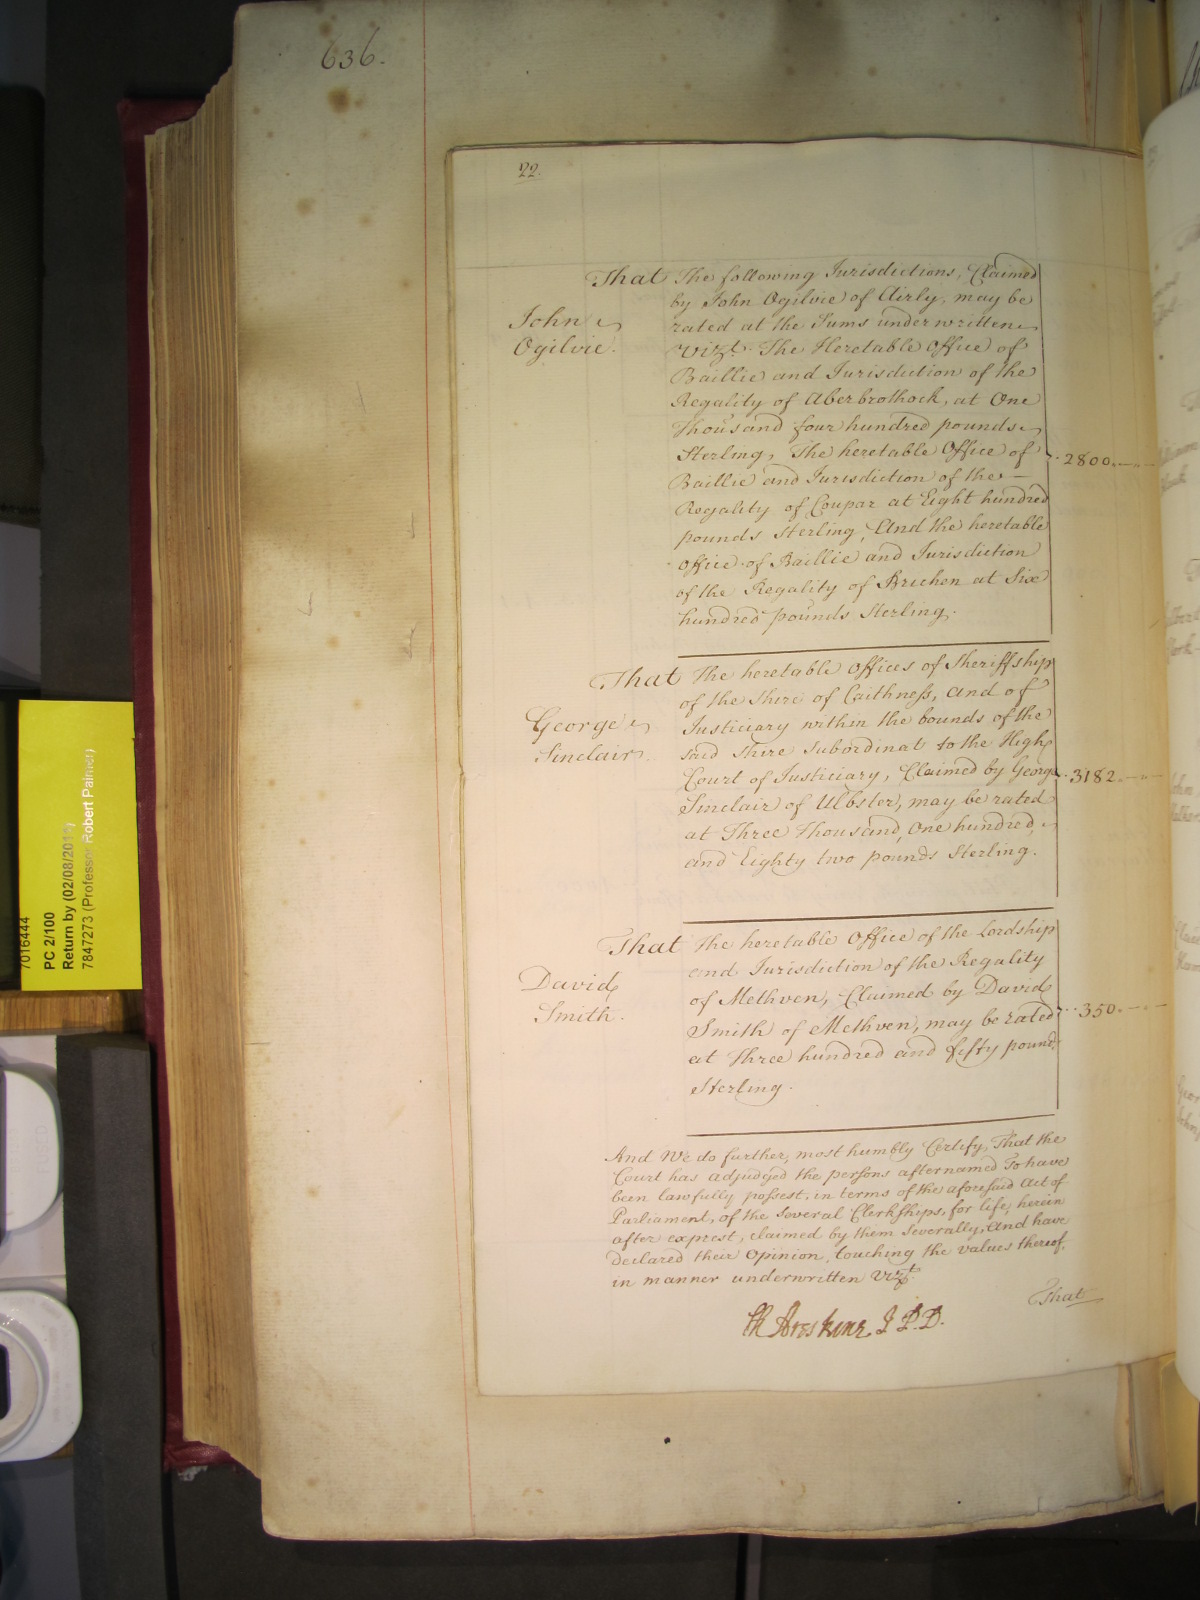 636.
22.
That The following Jurisdictions, Claimed
by John Ogilvie of Airly, may be
John
Ogilvie.
rated at the Sums underwritten
vizt. The Heretable Office of
Baillie and Jurisdiction of the
Regality of Aberbrothock, at One
thousand four hundred pounds
Sterling, The heretable Office of
2800.
Baillie and Jurisdiction of the
Regality of Coupar at Eight hundred
pounds Sterling, And the heretable
office of Baillie and Jurisdiction
of the Regality of Brichen at Six
hundred pounds Sterling.
That The heretable Offices of Sheriffship
of the shire of Caithness, and of
George
Sinclair.
Justiciary within the bounds of the
said shire Subordinate to the High
Court of Justiciary, Claimed by George
3182.
Sinclair of Ulbster, may be rated
at Three thousand, One hundred,
and Eighty two pounds Sterling.
That the heretable Office of the Lordship
and Jurisdiction of the Regality
David
Smith.
of Methven, Claimed by David
Smith of Methven, may be rated
350.
at three hundred and fifty pounds
Sterling.
And We do further, most humbly Certify, That the
Court has adjudged the persons afternamed To have
been lawfully possest, in terms of the aforesaid Act of
Parliament, of the Several Clerkships, for life, herein
after exprest, claimed by them Severally, And have
declared their Opinion, touching the values thereof,
in manner underwritten Vizt.
That
Ch Areskine J P. D.
7016444
PC 2/100
Return by (02/08/2019)
7847273 (Professor Robert Palmer)